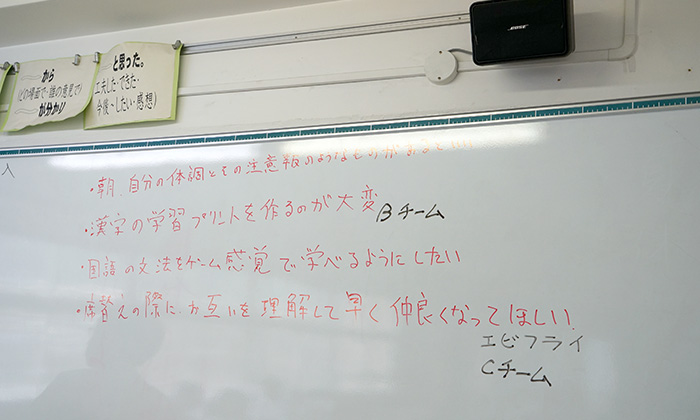 BOSE
から
(どの場面で・誰の意見で)
が分かり!
と思った。
工夫した・できた・
今後~したい・感想)
人
・朝、自分の体調とその注意報のようなものがあると
・漢字の学習プリントを作るのが大変
Bチーム
・国語の文法をゲーム感覚で学べるようにしたい
・席替えの際に、お互いを理解して早く仲良くなってほしい。
エビフライ
Cチーム